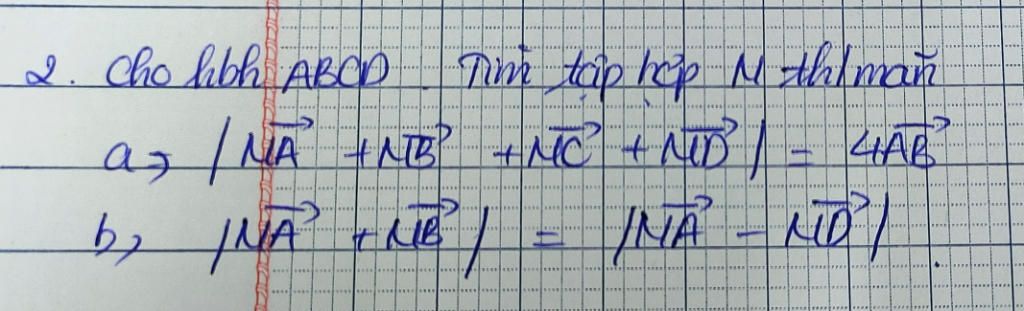 2. Cho hbh ABCD. Tìm tập hợp M th/mãn
a, |MA→ + MB→ + MC→ + MD→| = 4AB→
b, |MA→ + MB→| = |MA→ - MD→|.